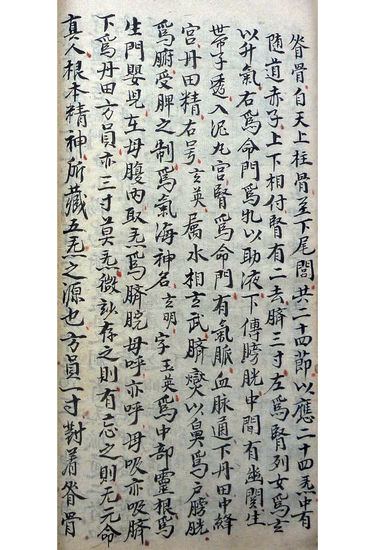 脊骨自天上柱骨至下尾閭共二十四節以應二十四炁中有
隨道赤子上下相付腎有二去臍三寸左爲腎列女爲玄
以升氣右爲命門爲牝以助液下傳膀胱中間有幽関生
带子透入泥丸宮腎爲命門有氣脈血脉通下丹田中絳
宮丹田精右号玄英属水相玄武臍㷫以鼻爲户膀胱
爲腑受脾之制爲氣海神名玄明字玉英爲中部靈根爲
生門嬰児在母腹内取炁爲臍脘母呼亦呼母吸亦吸臍
下爲丹田方員亦三寸莫炁微玅存之則有忘之則无元命
真人根本精神所藏五炁之源也方員一寸對着脊骨